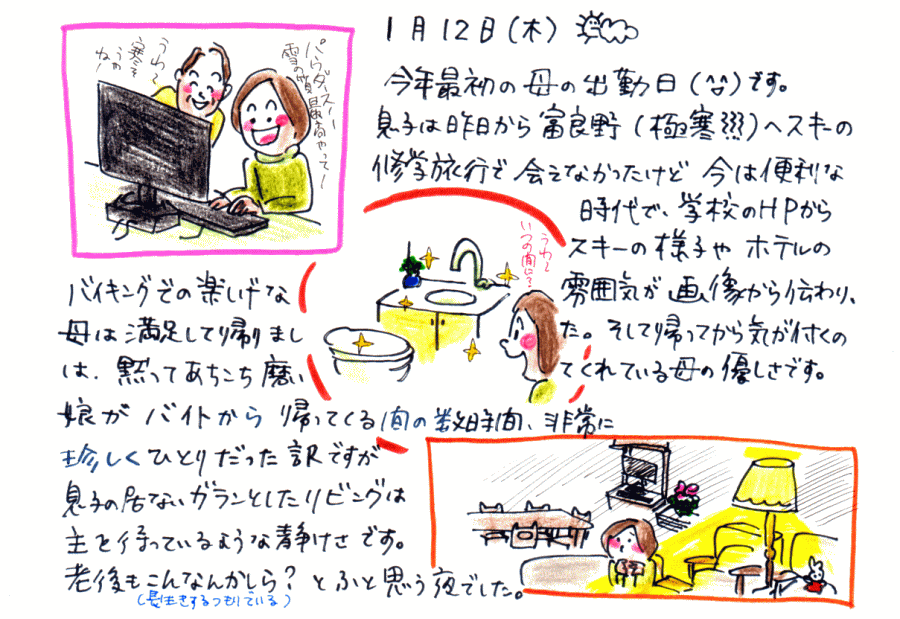 1月12日(木)
今年最初の母の出勤日(^^)です。
息子は昨日から富良野(極寒!!!)へスキーの
修学旅行で会えなかったけど 今は便利な
時代で、学校のHPから
スキーの様子や ホテルの
バイキングでの楽しげな
雰囲気が画像から伝わり、
母は満足して帰りまし
た。そして帰ってから気が付くの
は、黙ってあちこち磨い
てくれている母の優しさです。
娘がバイトから帰ってくる間の数時間、非常に
珍しくひとりだった訳ですが
息子の居ないガランとしたリビングは
主を待っているような静けさです。
老後もこんなんかしら?とふと思う夜でした。
(長生きするつもりでいる)
うわ〜
寒そ
うやな〜
パウダースノー
雪の質最高やってー
うわ〜
いつの間に?